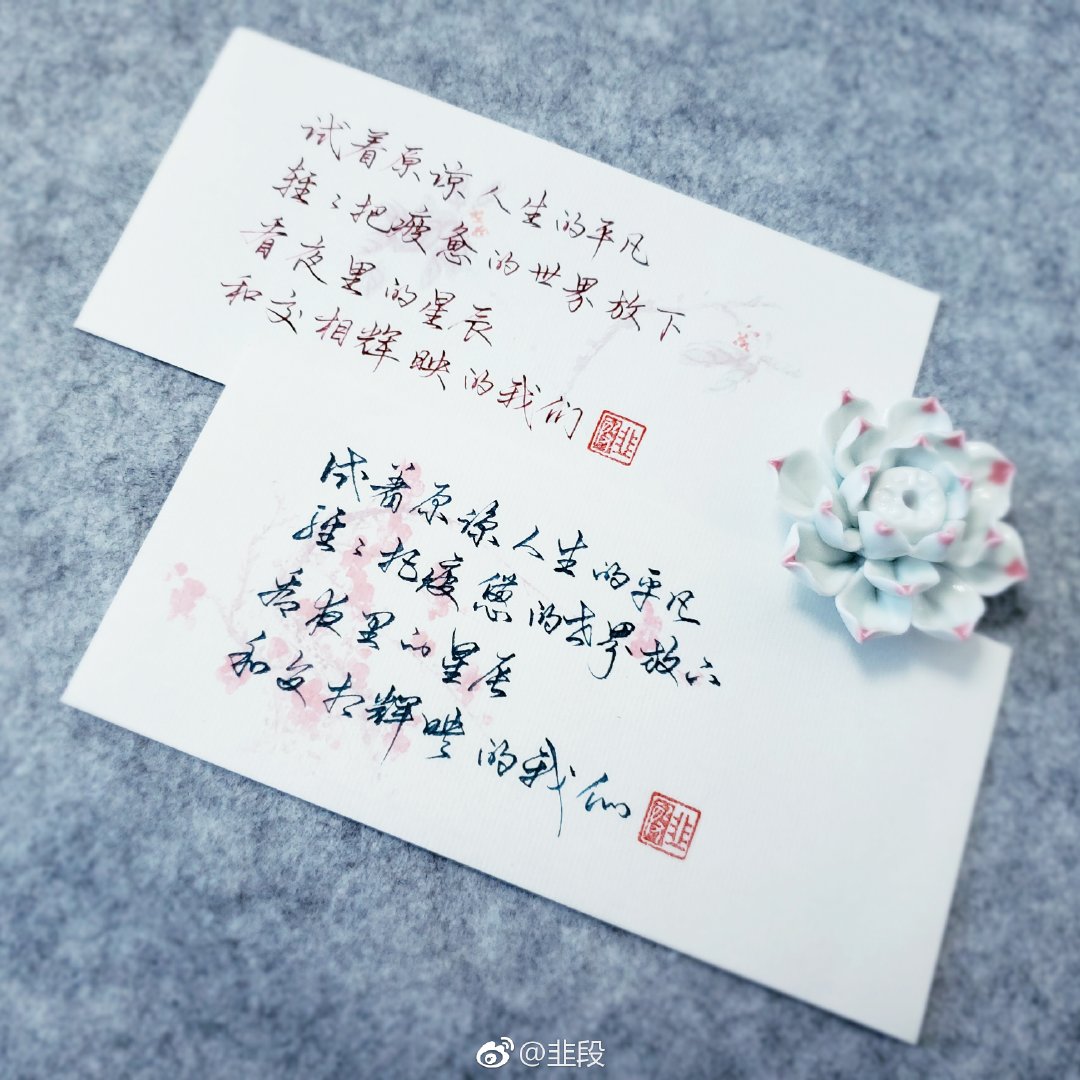 试着原谅人生的平凡
轻〻把疲惫的世界放下
看夜里的星辰
和交相辉映的我们
试着原谅人生的平凡
轻〻把疲惫的世界放下
看夜里的星辰
和交相辉映的我们
@韭段